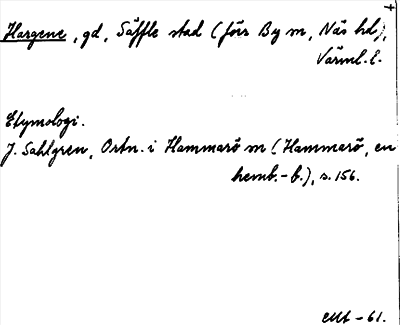 +
Hargene, gd, Säffle stad (förr By sn, Näs hd),
Värml. l.
Etymologi.
J. Sahlgren, Ortn. i Hammarö sn (Hammarö, en
hemb.-b.), s. 156.
-61.